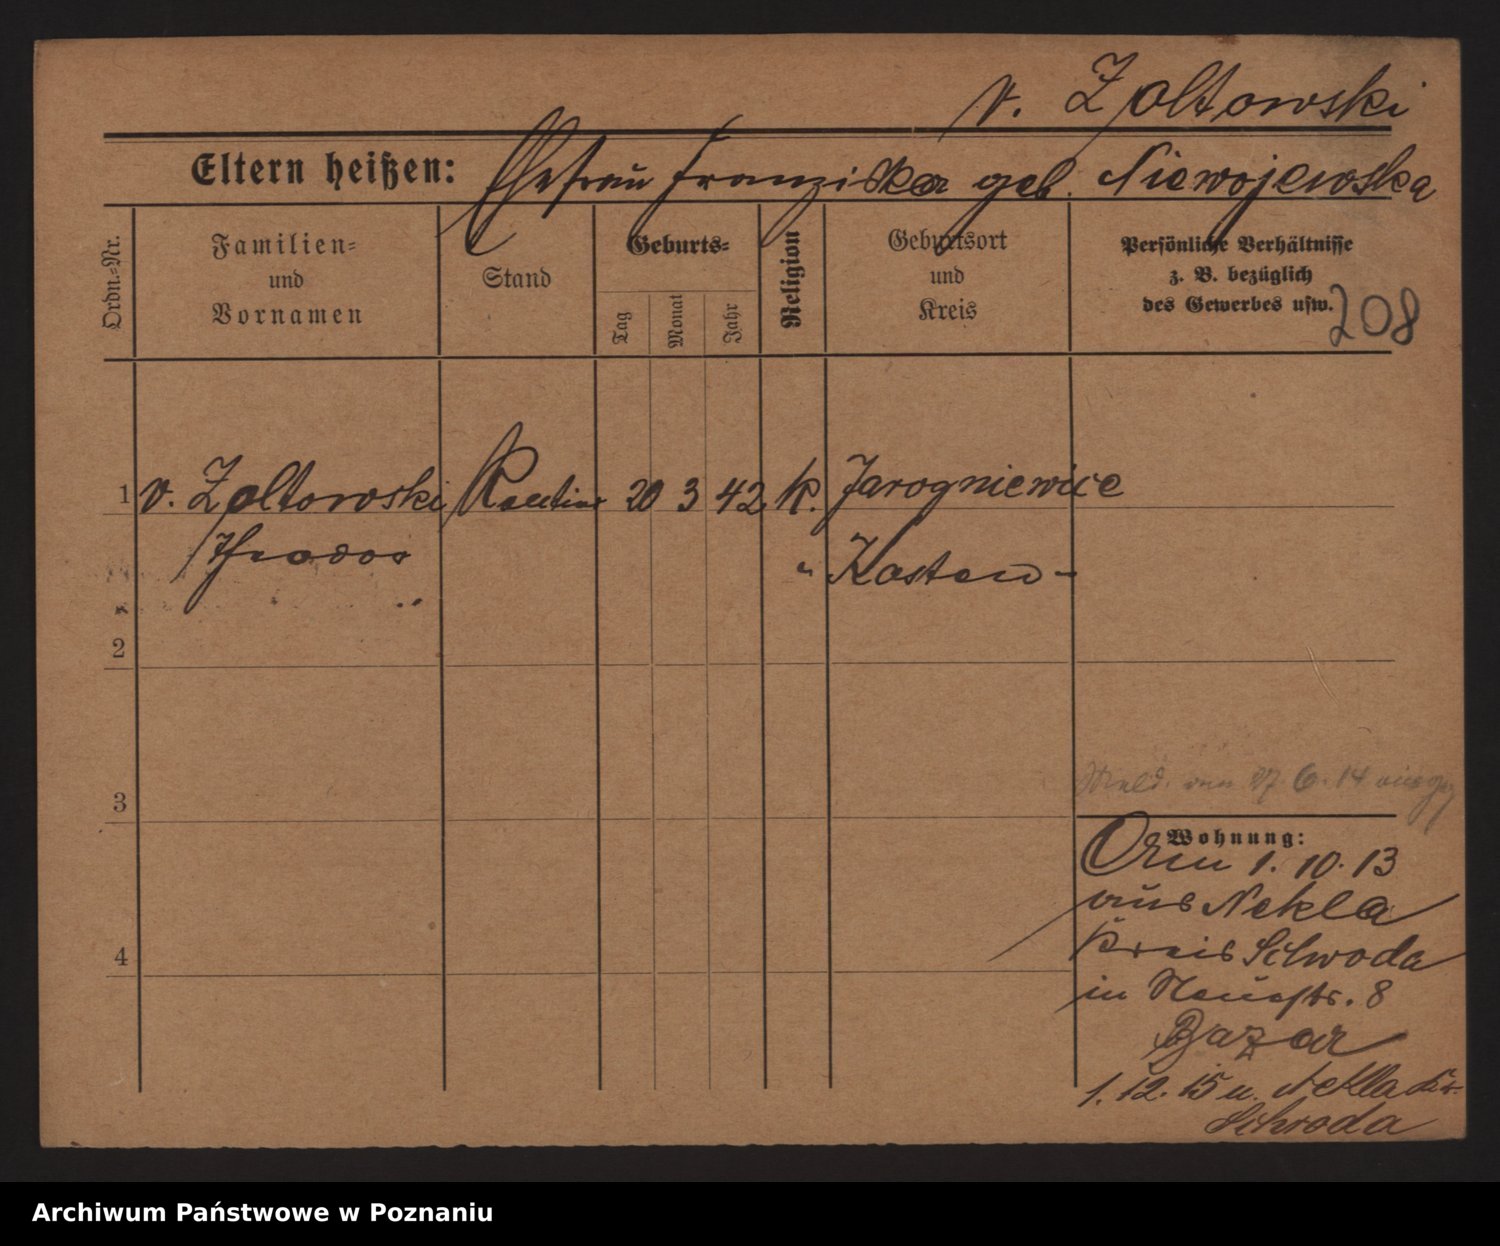 v. Zoltowski
Eltern heißen: Ehefrau Franziska geb. Niewojewska
Ordn.=Nr.
Familien=
und
Vornamen
Stand
Geburts=
Tag
Monat
Jahr
Religion
Geburtsort
und
Kreis
Persönliche Verhältnisse
z. B. bezüglich
des Gewerbes usw.
208
1 v. Zoltowski Rentier 20 3 42 k. Jarogniewice
Theodor " Kosten -
2
3
Meld. vom 27. 6. 14
Wohnung:
Am 1. 10. 13
aus Nekla
Kreis Schroda
in Neuestr. 8
Bazar
4
1. 12. 15 n. Nekla Kr.
Schroda
Archiwum Państwowe w Poznaniu